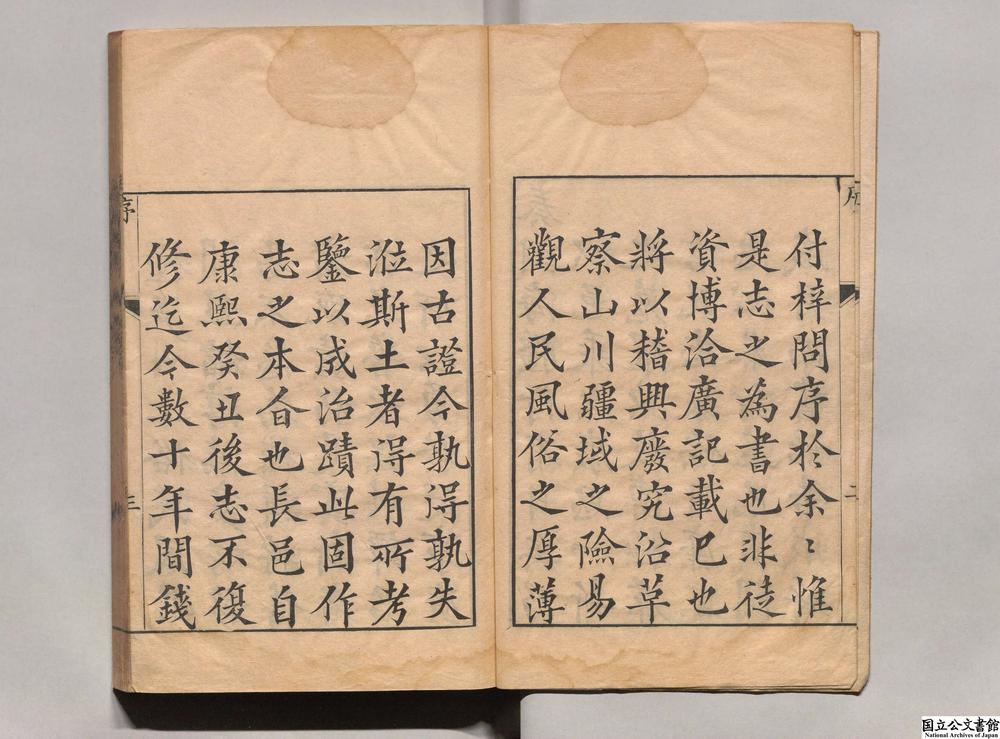 付梓問序於余〻惟
是志之為書也非徒
資博洽廣記載已也
將以稽興廢究沿革
察山川疆域之險易
觀人民風俗之厚薄
序
二
因古證今孰得孰失
涖斯土者得有所考
鑒以成治蹟此固作
志之本旨也長邑自
康熙癸丑後志不復
修迄今數十年間錢
序
三
国立公文書館
National Archives of Japan